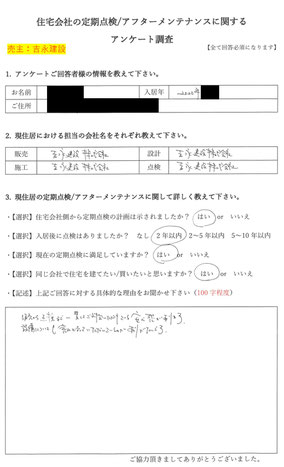 住宅会社の定期点検/アフターメンテナンスに関する
アンケート調査
売主：吉永建設
【全て回答必須になります】
1. アンケートご回答者様の情報を教えて下さい。
お名前 入居年 年
ご住所
2. 現住居における担当の会社名をそれぞれ教えて下さい。
販売 吉永建設株式会社 設計 吉永建設株式会社
施工 吉永建設株式会社 点検 吉永建設株式会社
3. 現住居の定期点検/アフターメンテナンスに関して詳しく教えて下さい。
・【選択】住宅会社側から定期点検の計画は示されましたか？ はい or いいえ
・【選択】入居後に点検はありましたか？ なし 2年以内 2～5年以内 5～10年以内
・【選択】現在の定期点検に満足していますか？ はい or いいえ
・【選択】同じ会社で住宅を建てたい/買いたいと思いますか？ はい or いいえ
・【記述】上記ご回答に対する具体的な理由をお聞かせ下さい（100字程度）
ご協力頂きましてありがとうございました。